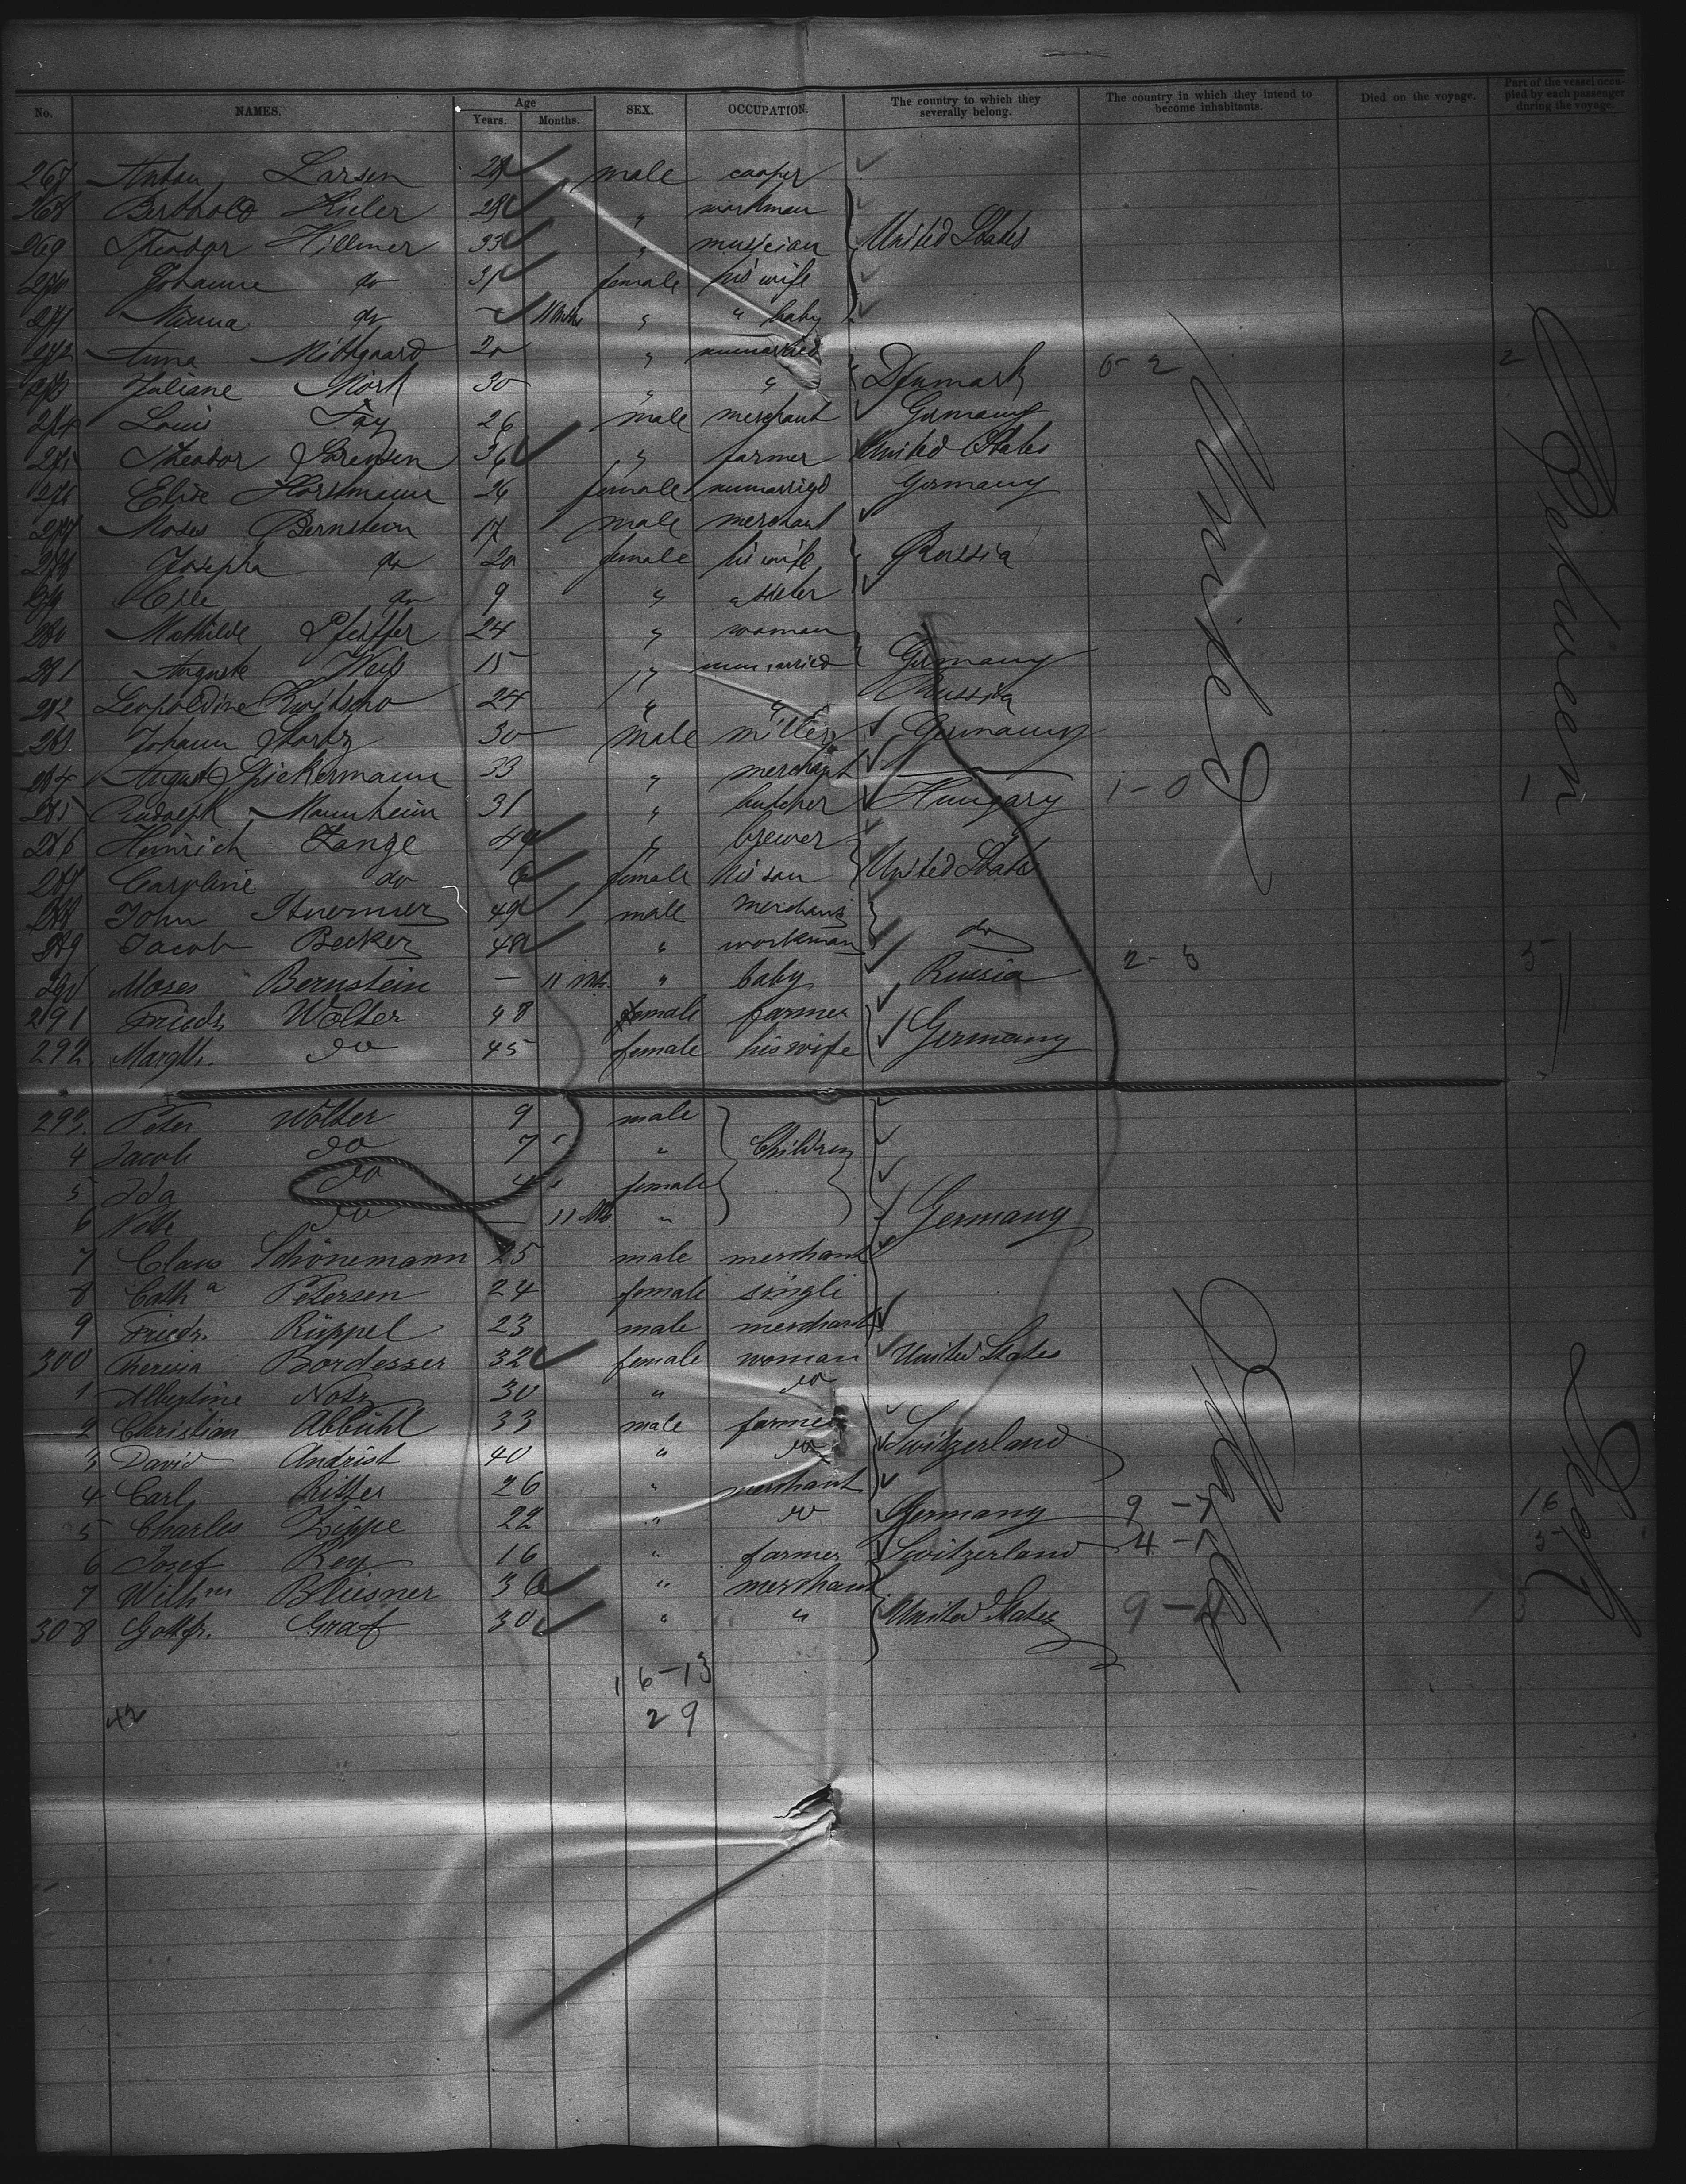 No. NAMES. Age Years. Months. SEX. OCCUPATION. The country to which they severally belong. The country in which they intend to become inhabitants. Died on the voyage. Part of the vessel occupied by each passenger during the voyage.
267 Anton Larsen male cooper
268 Berthold Hieler 28 " workman
269 Theodor Hillmer 33 " musician United States
270 Johanne do 31 female his wife
271 Minna do - 11 Mths " " baby
272 Anna 20 " unmarried
273 Juliane Mörk 30 " " Denmark 0-2 2
274 Louis Fay 26 male merchant Germany
275 Theodor Sörensen 36 " farmer United States
276 Elise Horstmann 26 female unmarried Germany
277 Moses Bernstein 17 male merchant
278 Josepha do 20 female his wife Russia
279 do 9 " " sister
280 Mathilde Pfeiffer 24 " woman
281 Auguste Weiß 15 " unmarried Germany
282 Leopoldine 24 " "
283 Johann 30 male miller Germany
284 August Spickermann 33 " merchant
285 Rudolph Mannheim 31 " butcher Hungary 1-0 1
286 Heinrich Lange 44 " brewer
287 Caroline do 6 female his son United States
288 John Stuermer 49 male merchant
289 Jacob Becker 48 " workman do
290 Moses Bernstein - 11 Mth. " baby Russia 2-3 5
291 Friedr. Wölter 48 male farmer
292. Margth. do 45 female his wife Germany
293. Peter Wölter 9 male
4 Jacob do 7 " Children
5 Ida do 4 female
6 do - 11 Mth. " Germany
7 Claus Schönemann 25 male merchant
8 Cath a Petersen 24 female single
9 Friedr. Rüppel 23 male merchant
300 Theresia Bordesser 32 female woman United States
1 Albertine Notz 30 " do
2 Christian Abbühl 33 male farmer
3 David Andrist 40 " do Switzerland
4 Carl Ritter 26 " merchant
5 Charles Zippe 22 " do Germany 9-7 16
6 Josef Rey 16 " farmer Switzerland 4-1 5
7 Wilhm Bliesner 36 " merchant
308 Gottfr. Graf 30 " " United States 9-4 13
United States
Between Deck
16-13
42 29